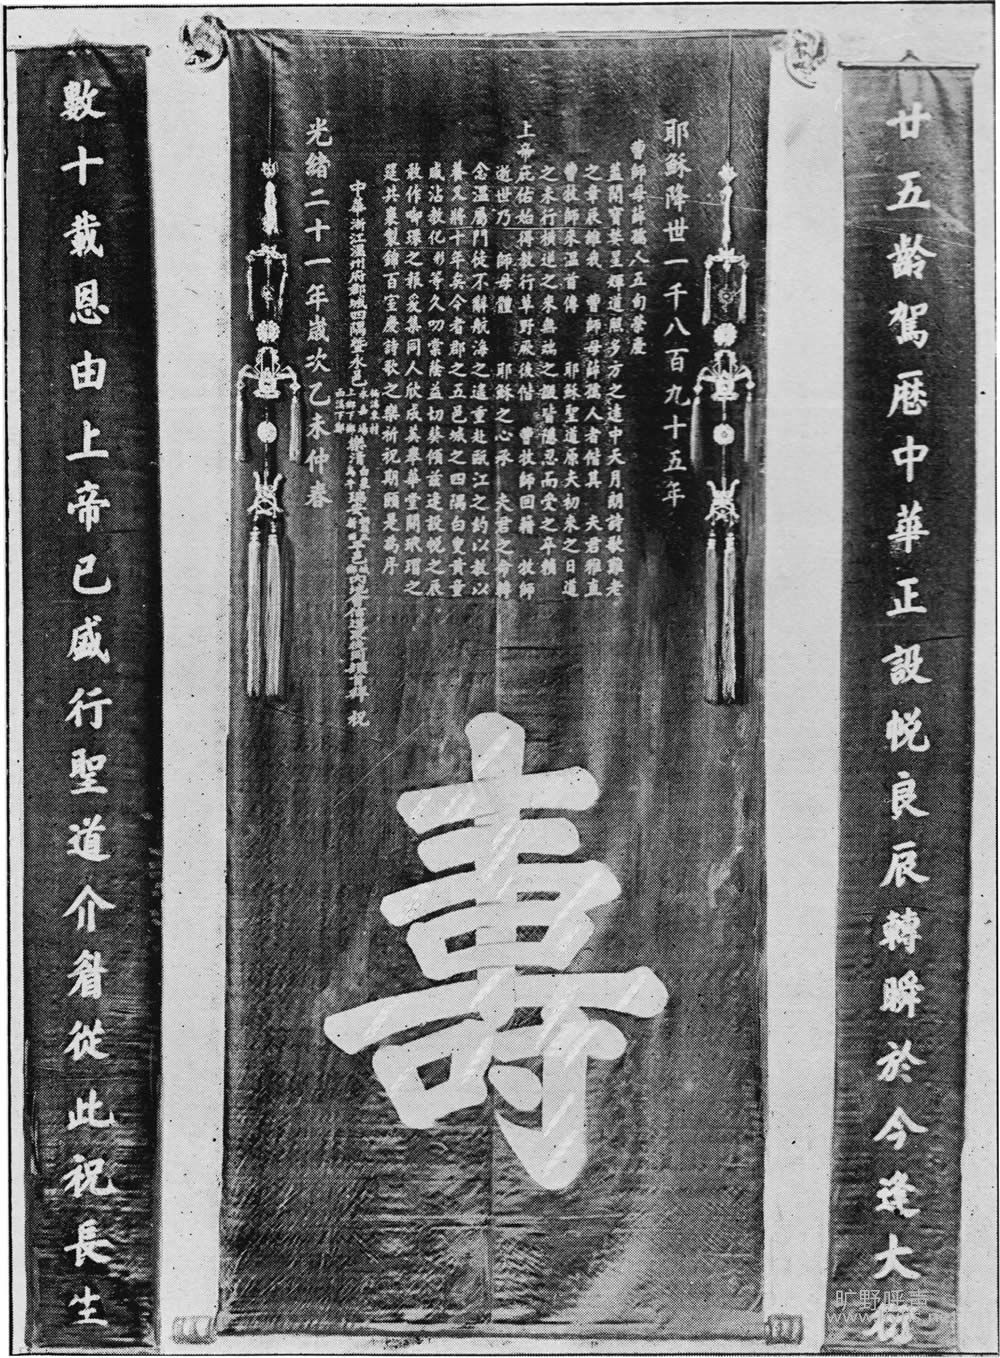 廿五齡駕厯中華正設帨良辰轉瞬於今逢大衍
耶穌降世一千八百九十五年
曹師母蘇孺人五旬榮慶
蓋聞寶婺呈輝道照多方之遠中天月朗詩歌難老
之章辰維我 曹師母蘇孺人者偕其 夫君雅直
曹牧師來溫首傳 耶穌聖道原夫初來之日道
之未行橫逆之來無端之皆隱忍而受之卒賴
上帝庇佑始得教行草野厥後偕 曹牧師回籍 牧師
逝世乃 師母體 耶穌之心承 夫君之命轉
念溫屬門徒不辭航海之遠重赴甌江之約以教以
養又將十年矣今者郡之五邑城之四隅白叟黃童
咸沾教化彤等久叨棠蔭益切葵傾茲逢設帨之辰
敢作啣環之報爰集同人欣成美舉華堂開玳瑁之
筵共裘製錦百室慶詩歌之樂祈祝期頤是為序
中華浙江溫州府郡城四隅暨永邑 樂清 瑞安 內地會 同頓首拜 祝
光緒二十一年歲次乙未仲春
壽
數十載恩由上帝已盛行聖道介眉從此祝長生
旷野呼声